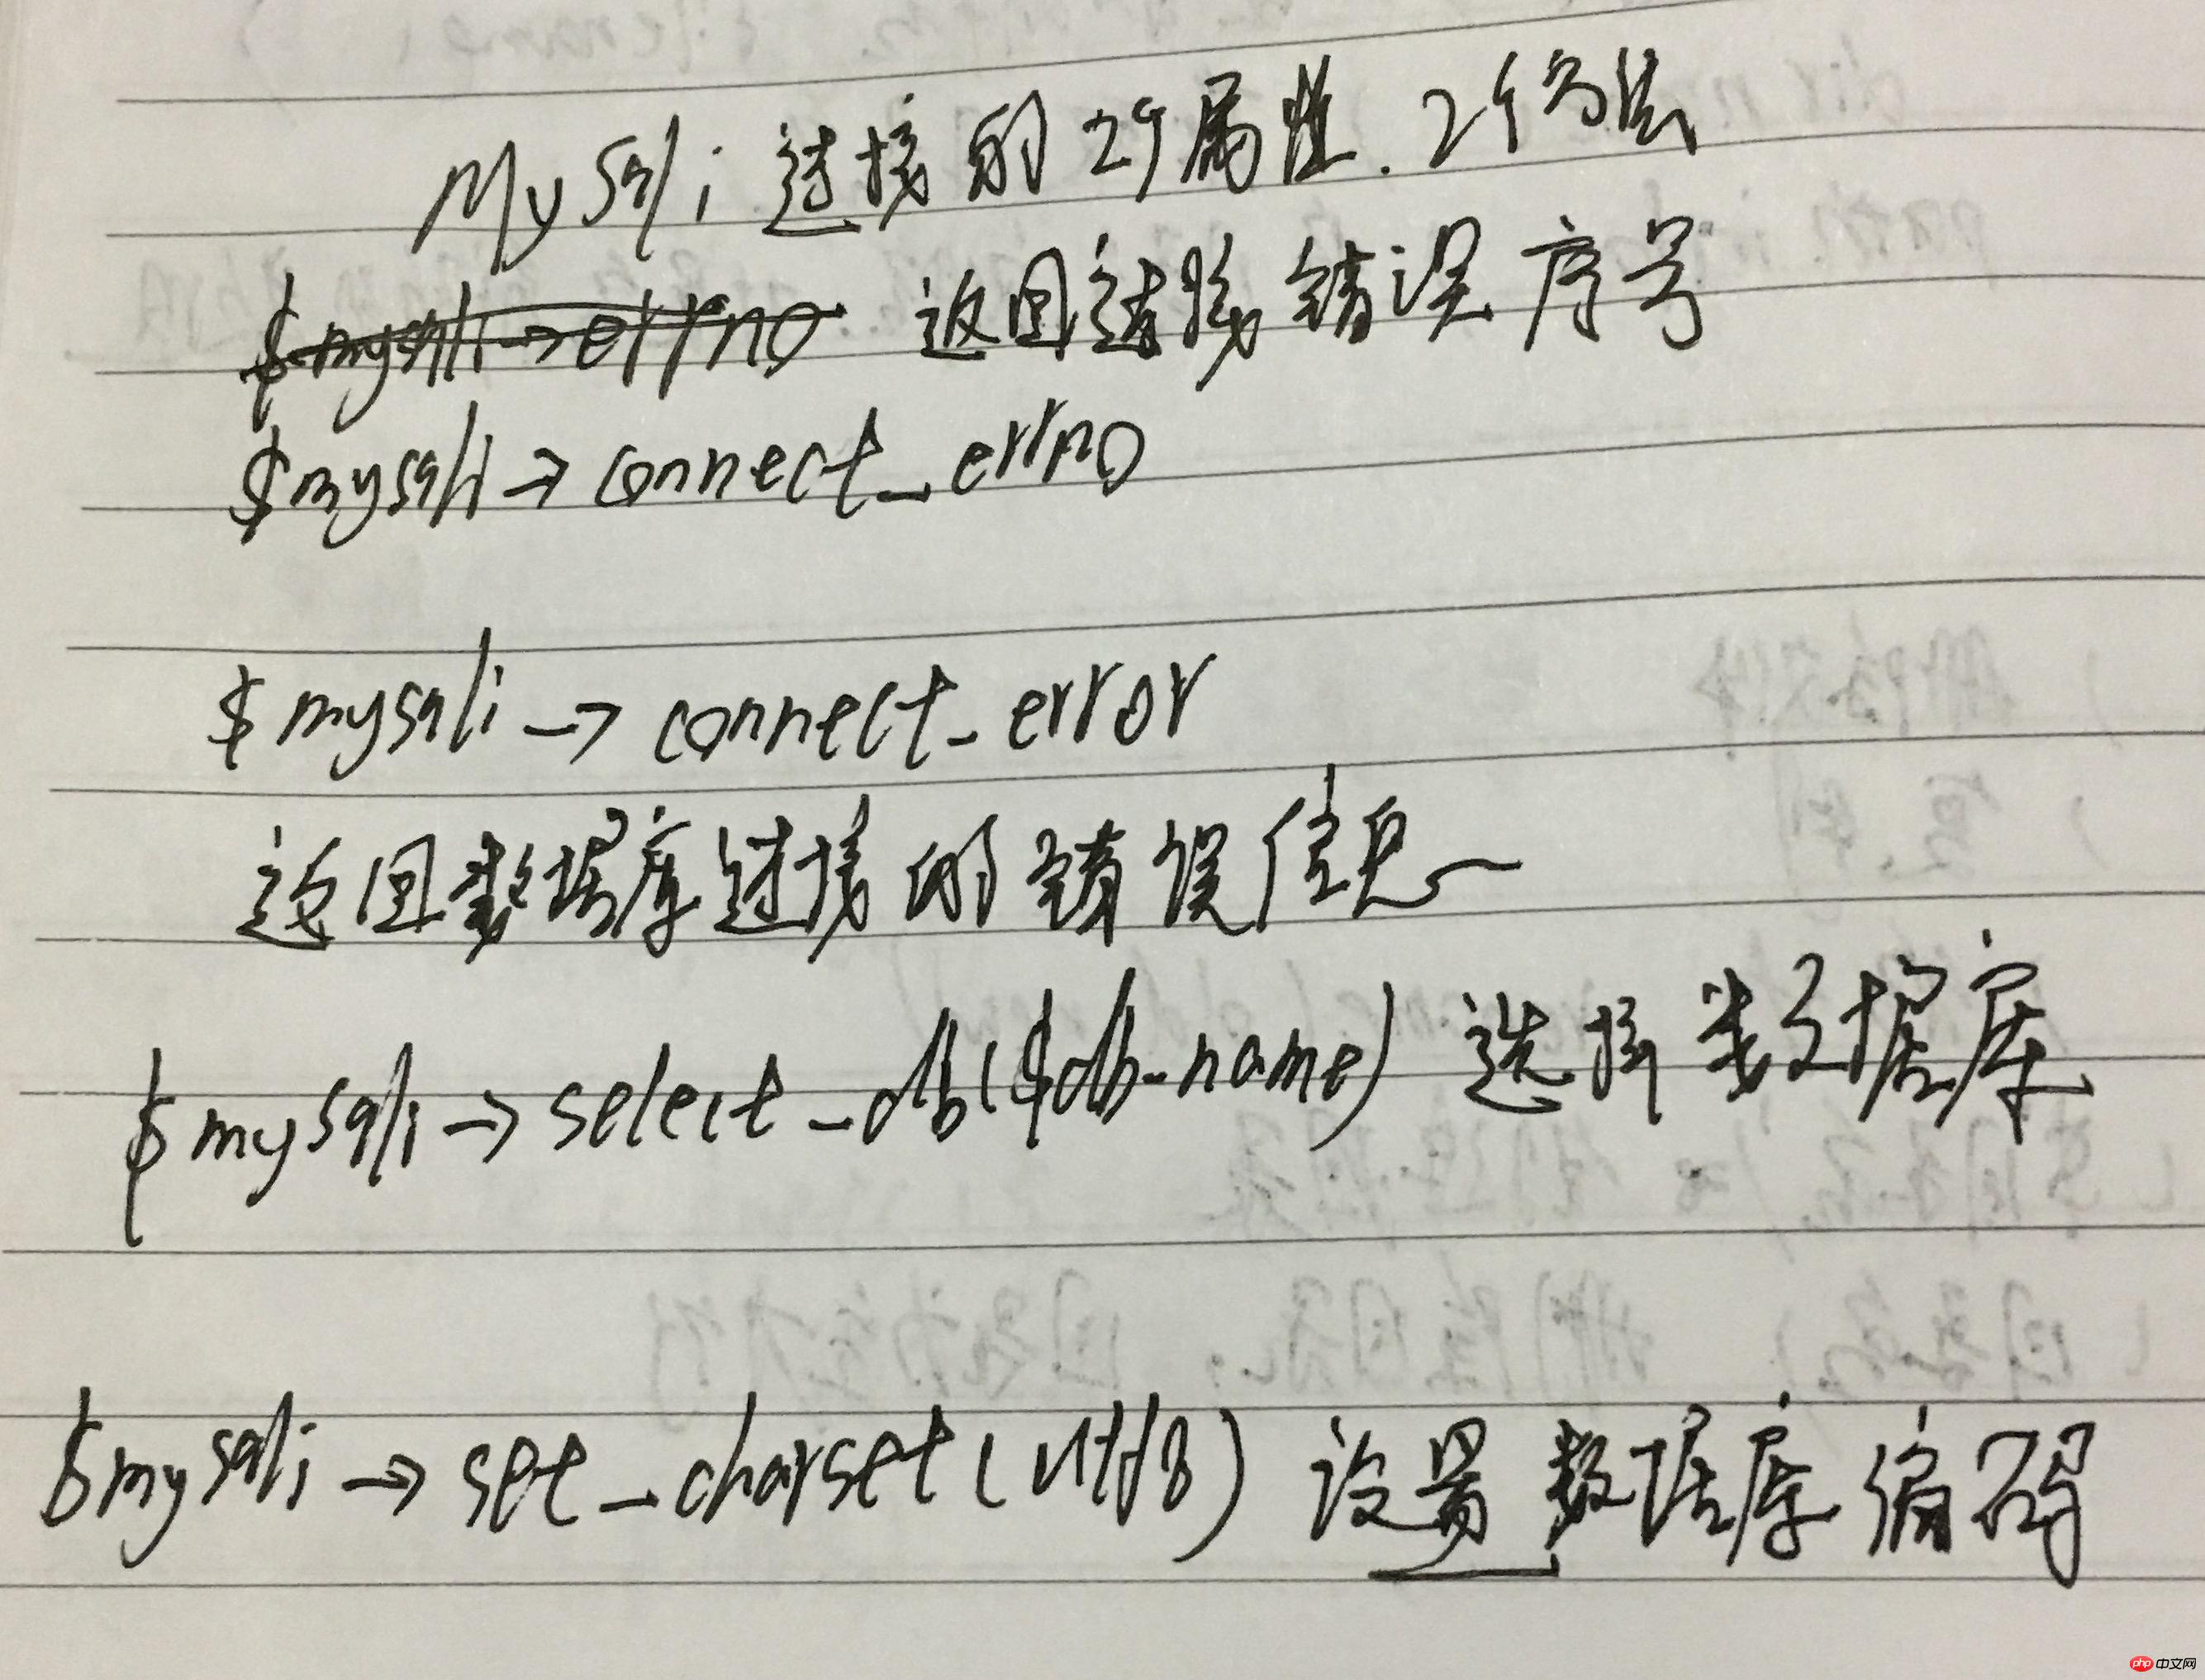 Mysqli 连接的 2个属性. 2个方法
$mysqli→errno 返回连接错误序号
$mysqli→connect_errno
$mysqli→connect_error
返回数据库连接的错误信息
$mysqli→select_db($db-name) 选择数据库
$mysqli→set_charset(utf8) 设置数据库编码
php 中文网